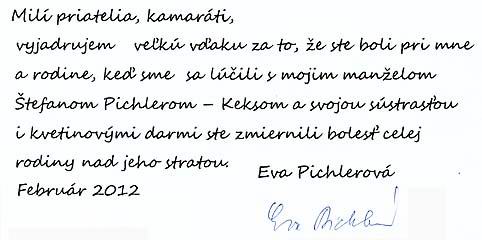 Milí priatelia, kamaráti,
vyjadrujem veľkú vďaku za to, že ste boli pri mne
a rodine, keď sme sa lúčili s mojim manželom
Štefanom Pichlerom – Keksom a svojou sústrasťou
i kvetinovými darmi ste zmiernili bolesť celej
rodiny nad jeho stratou.
Eva Pichlerová
Február 2012
Eva Pichler